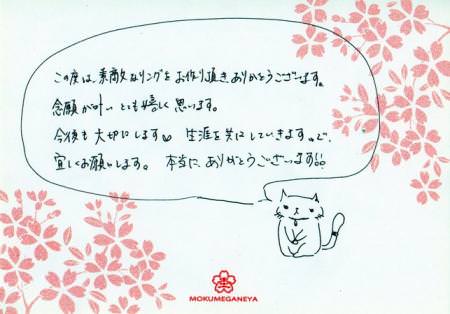 この度は、素敵なリングをお作り頂きありがとうございます。
念願が叶いとても嬉しく思います。
今後も大切にします♡ 生涯を共にしていきますので、
宜しくお願いします。 本当に、ありがとうございます!!
MOKUMEGANEYA